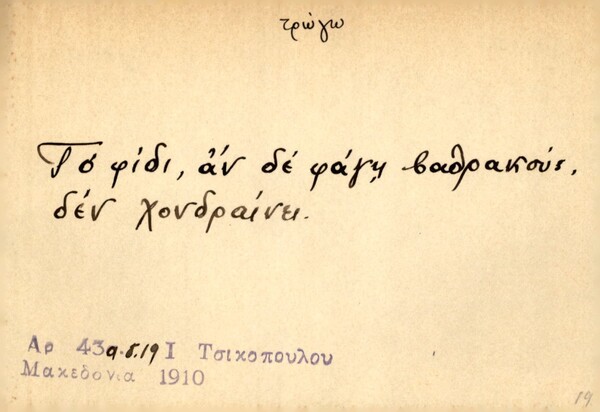 τρώγω
Τό φίδι, ἄν δέ φάγῃ βαθρακούς,
δέν χονδραίνει.
Αρ 43 α.δ.19 Ι Τσικοπουλου
Μακεδονια 1910
19